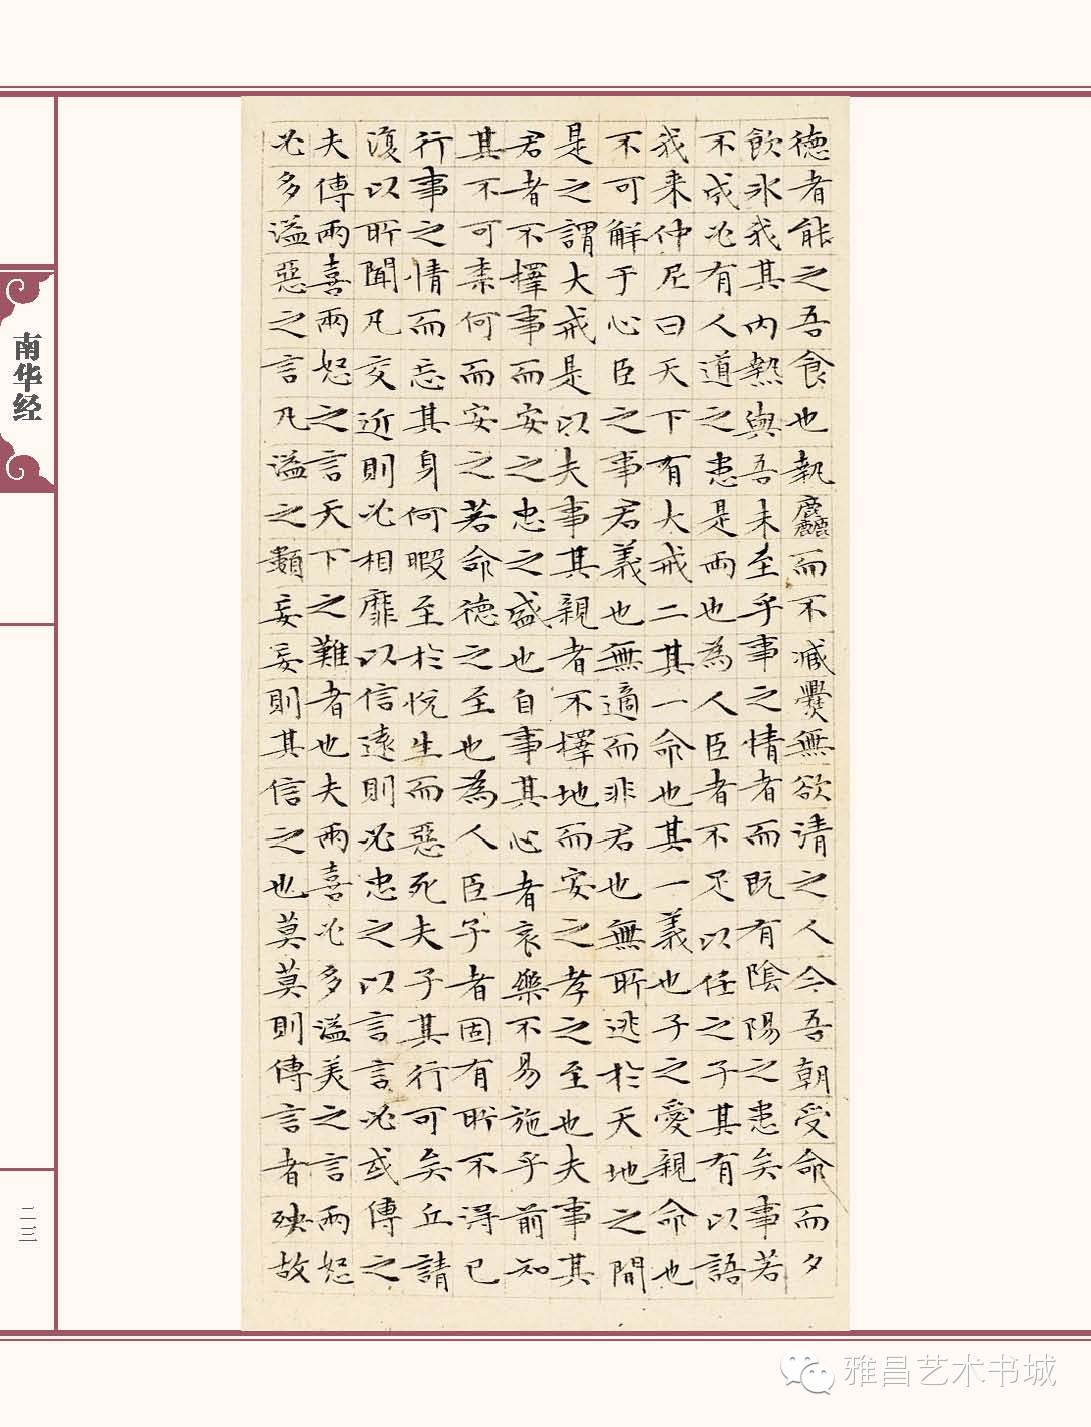 德者能之吾食也執麤而不臧爨無欲清之人今吾朝受命而夕
飲氷我其内熱與吾未至乎事之情者而既有陰陽之患矣事若
不成必有人道之患是兩也為人臣者不足以任之子其有以語
我来仲尼曰天下有大戒二其一命也其一義也子之愛親命也
不可解于心臣之事君義也無適而非君也無所逃於天地之間
是之謂大戒是以夫事其親者不擇地而安之孝之至也夫事其
君者不擇事而安之忠之盛也自事其心者哀樂不易施乎前知
其不可柰何而安之若命德之至也為人臣子者固有所不得已
行事之情而忘其身何暇至於悅生而惡死夫子其行可矣丘請
復以所聞凡交近則必相靡以信遠則必忠之以言言必或傳之
夫傳兩喜兩怒之言天下之難者也夫兩喜必多溢美之言兩怒
必多溢惡之言凡溢之類妄妄則其信之也莫莫則傳言者殃故
南华经
二三
雅昌艺术书城